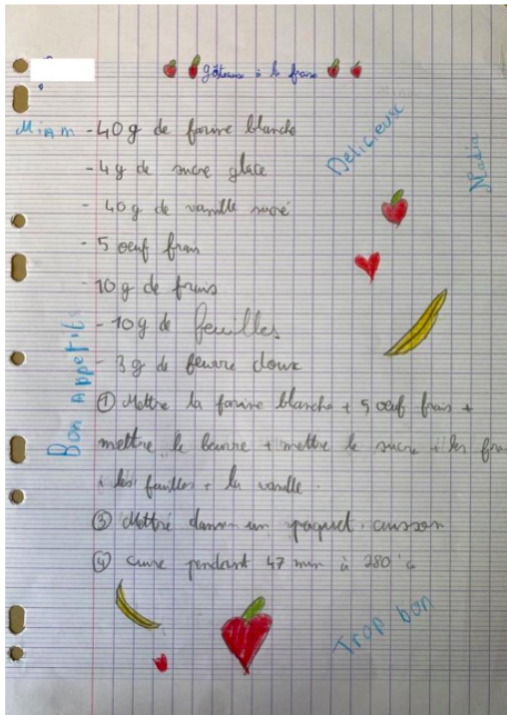 gâteaux à la frase
Miam
- 40 g de farine blanche
Délicieuse
- 4 g de sucre glace
- 40 g de vanille sucré
- 5 oeuf frais
- 10 g de frais
- 10 g de feuilles
- 3 g de beurre doux
Bon appetit
① Mettre la farine blanche + 5 oeuf frais +
mettre le beurre + mettre le sucre + les fra
+ les feuilles + la vanille.
③ Mettre dans un paquet cuisson
④ cuire pendant 47 min à 280°c
Trop bon